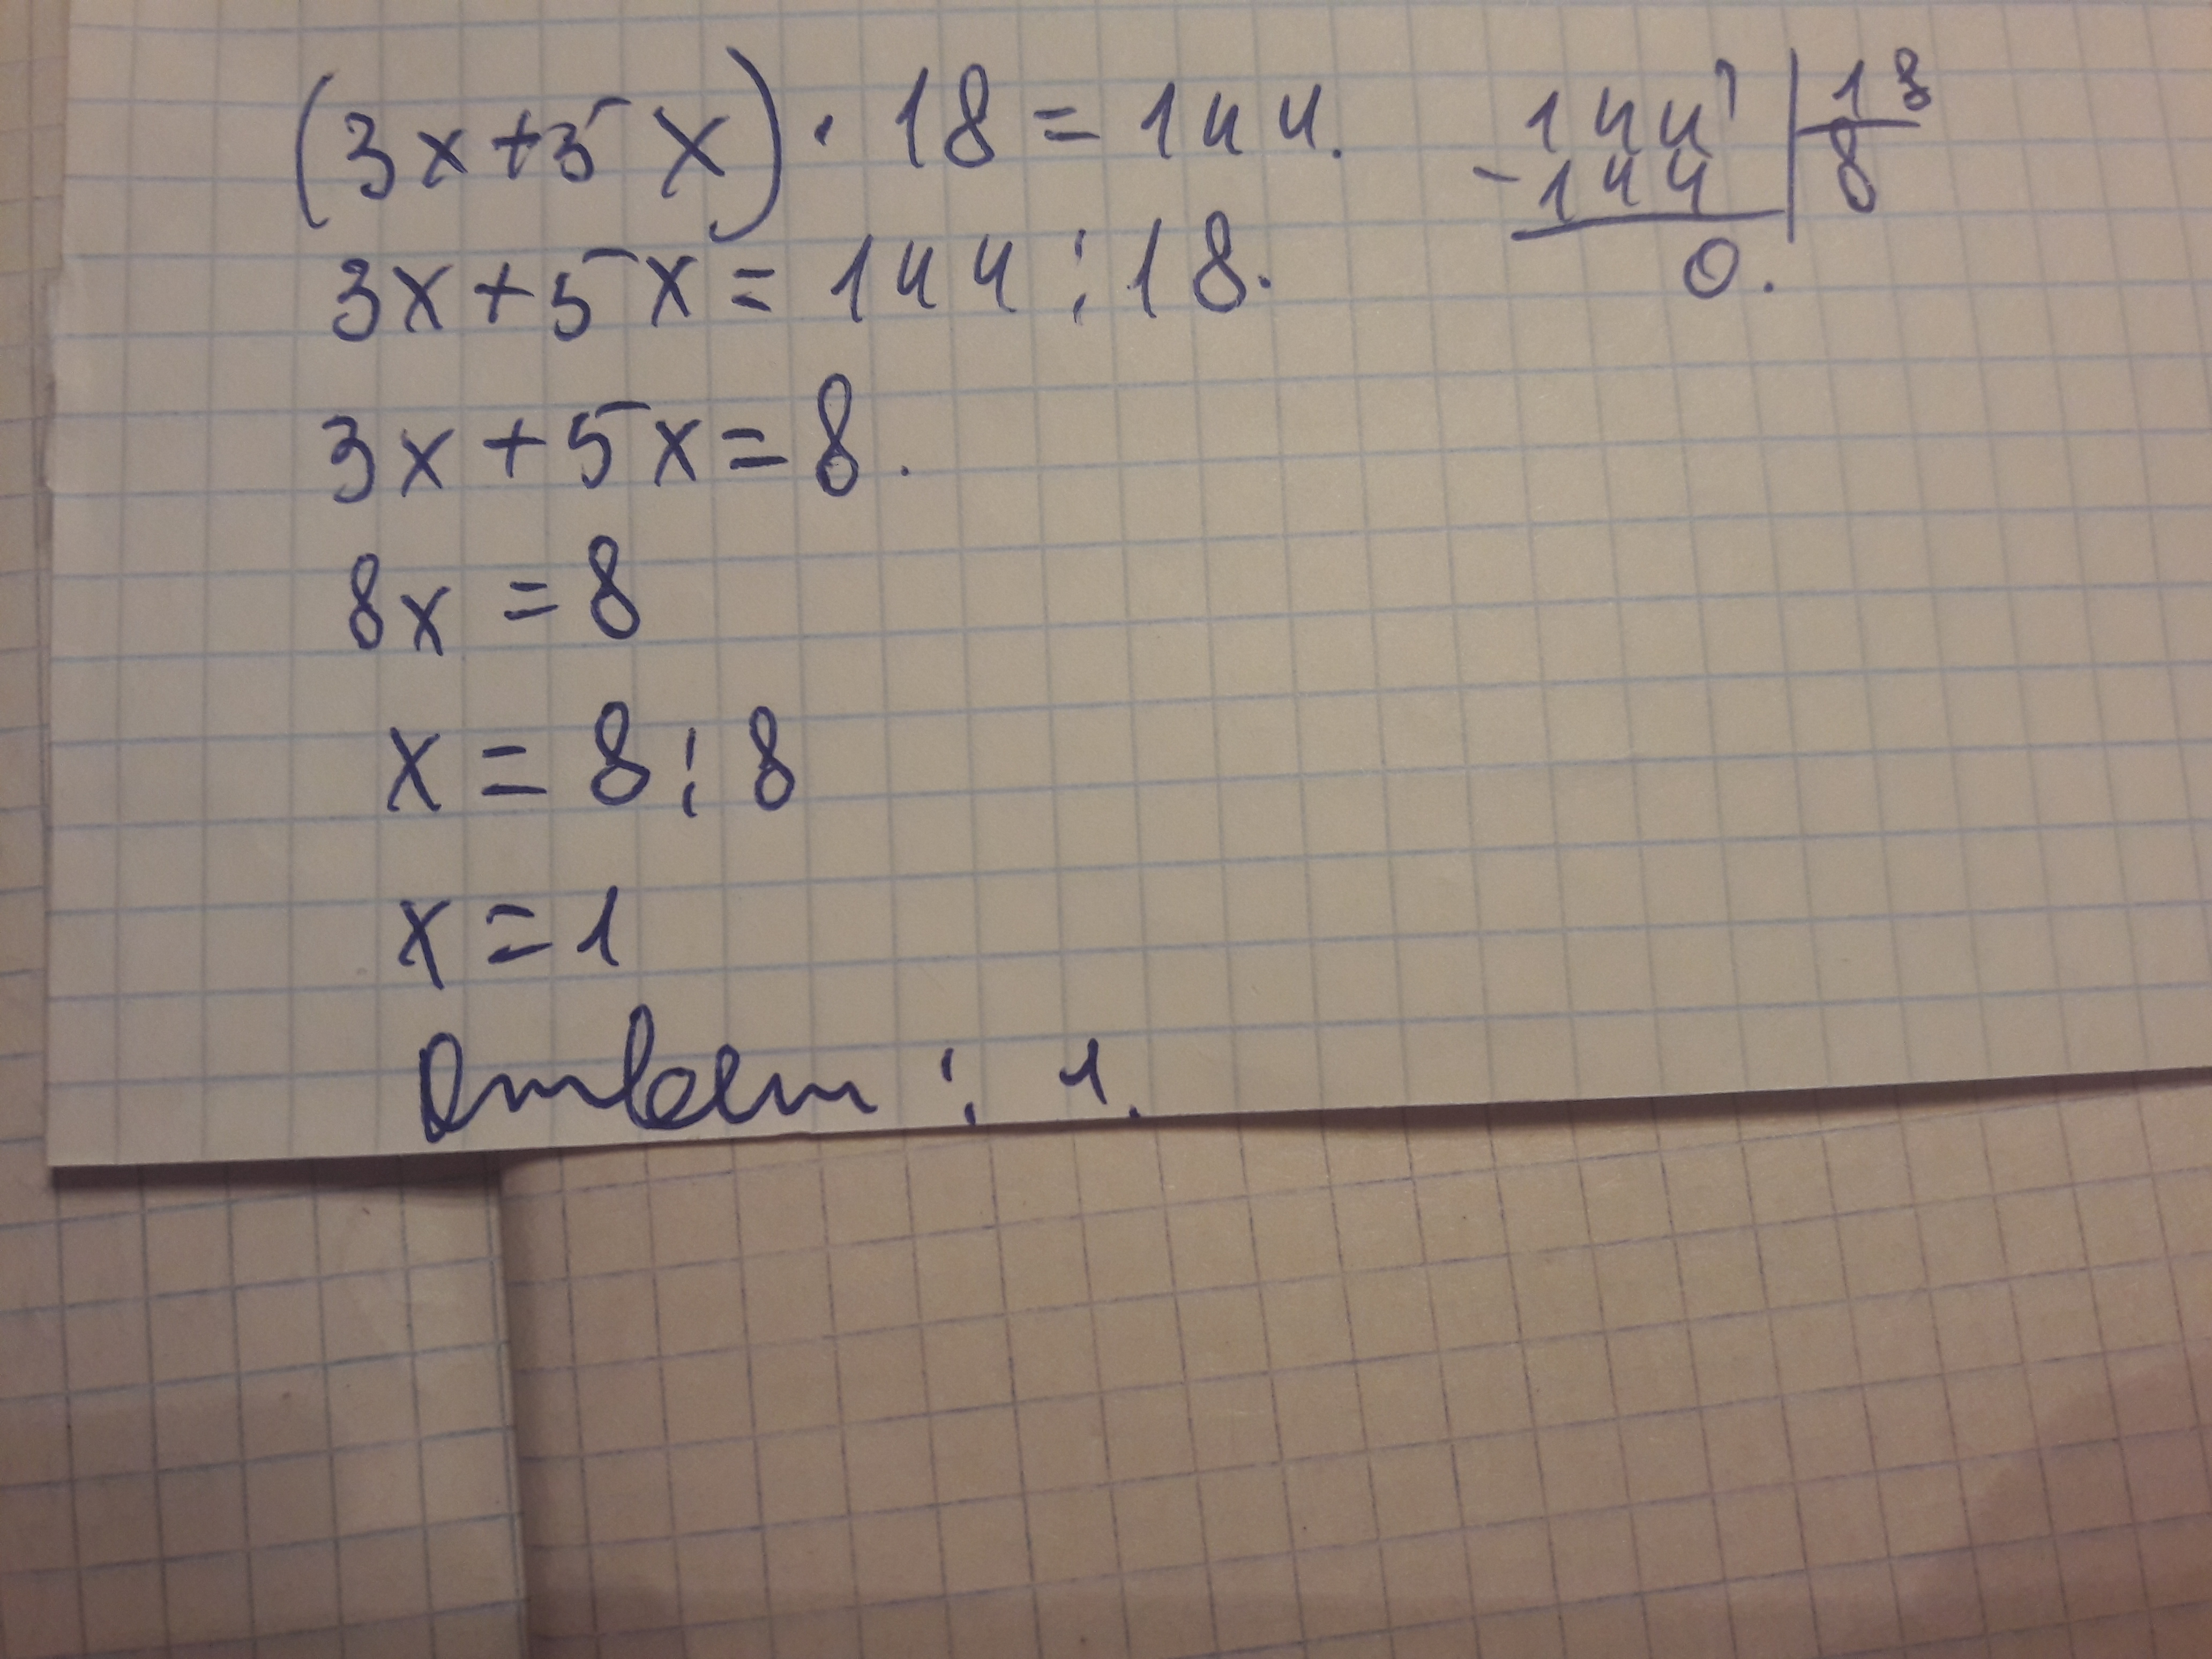 (3x+5x)·18=144.
3x+5x=144:18.
3x+5x=8.
8x=8
x=8:8
x=1
Ответ: 1.
144 | 18
-144 | 8
0.